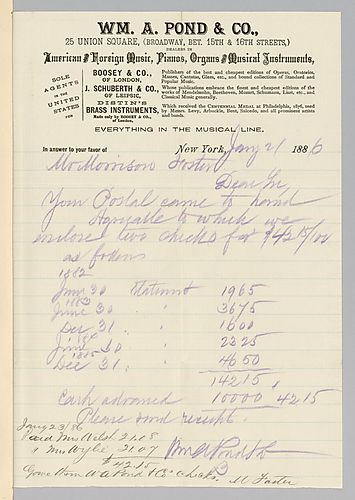 WM. A. POND & CO.,
25 UNION SQUARE, (BROADWAY, BET. 15TH & 16TH STREETS,)
DEALERS IN
American and Foreign Music, Pianos, Organs and Musical Instruments,
SOLE AGENTS IN THE UNITED STATES FOR
BOOSEY & CO., OF LONDON,
Publishers of the best and cheapest editions of Operas, Oratorios, Masses, Cantatas, Glees, etc., and bound collections of Standard and Popular Music.
J. SCHUBERTH & CO., OF LEIPSIC,
Whose publications embrace the finest and cheapest editions of the works of Mendelssohn, Beethoven, Mozart, Schumann, Liszt, etc., and Classical Music generally.
DISTIN'S BRASS INSTRUMENTS,
Made only by BOOSEY & CO., of London,
Which received the CENTENNIAL MEDAL at Philadelphia, 1876, used by Messrs. Levy, Arbuckle, Bent, Salcedo, and all prominent artists and bands.
EVERYTHING IN THE MUSICAL LINE.
In answer to your favor of
New York, Jany 21 1886
Mr Morrison Foster
Dear Sir,
Your Postal came to hand
Agreeable to which we
enclose two checks for $42 15/100
as follows
1882
June 30 Statement 1965
1883
June 30 " 3675
Dec 31 " 1600
1884
June 30 " 2325
1885
Dec 31 " 4650
14215
Cash advanced 10000 4215
Please send receipt.
Wm A Pond & Co
Jany 23/86
Paid Mrs Welsh 21.08
" Mrs Wylie 21.07
$42.15
Gave them W A Pond & Co's checks. M Foster